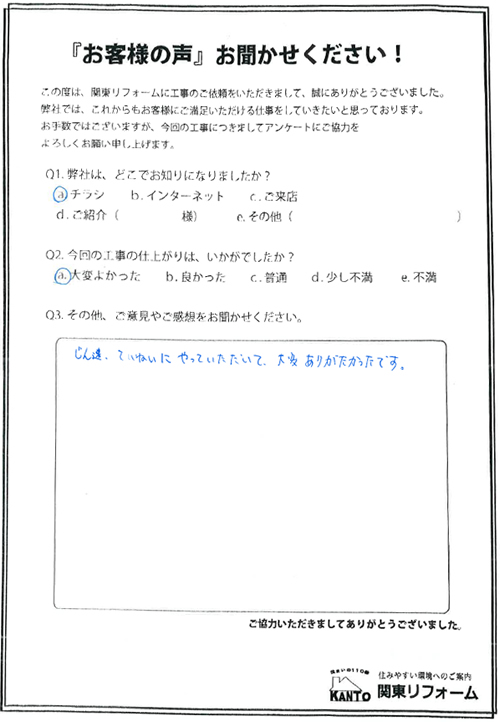 『お客様の声』お聞かせください！
この度は、関東リフォームに工事のご依頼をいただきまして、誠にありがとうございました。
弊社では、これからもお客様にご満足いただける仕事をしていきたいと思っております。
お手数ではございますが、今回の工事につきましてアンケートにご協力を
よろしくお願い申し上げます。
Q1. 弊社は、どこでお知りになりましたか？
a. チラシ　b. インターネット　c. ご来店
d. ご紹介（　　　　　様）　e. その他（　　　　　　　　　　　　　）
Q2. 今回の工事の仕上がりは、いかがでしたか？
a. 大変よかった　b. 良かった　c. 普通　d. 少し不満　e. 不満
Q3. その他、ご意見やご感想をお聞かせください。
じん速、ていねいに やっていただいて、大変 ありがたかったです。
ご協力いただきましてありがとうございました。
住まいの110番
住みやすい環境へのご案内
KANTO 関東リフォーム